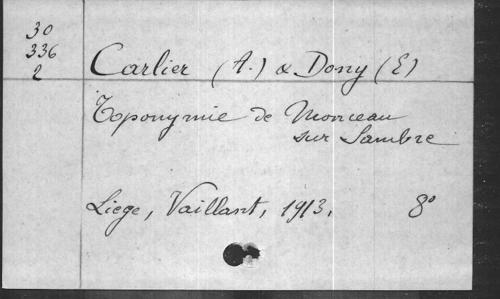 30
336
2
Carlier (A.) & Dony (E)
Toponymie de Monceau
sur Sambre
Liege, Vaillant, 1913. 8°